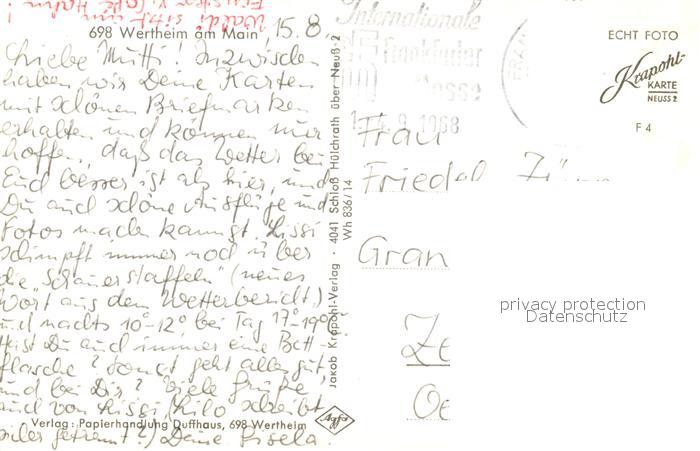 Waldi sitzt im
698 Wertheim am Main
15.8
Liebe Mutti! Inzwischen
haben wir Deine Karten
mit schönen Briefmarken
erhalten und können nur
hoffen, daß das Wetter bei
Euch besser ist als hier, und
Du auch schöne Ausflüge und
Fotos machen kannst. Lissi
schimpft immer noch über
die „Schauerstaffeln" (neues
Wort aus dem Wetterbericht.)
und nachts 10°-12° bei Tag 17°-19°
Hast Du auch immer eine Bett-
flasche? Sonst geht alles gut,
und bei Dir? Viele Grüße
auch von Lissi, (Lilo schreibt
getrennt!) Deine Gisela.
Verlag: Papierhandlung Duffhaus, 698 Wertheim
Jakob Krapohl-Verlag · 4041 Schloß Hülchrath über Neuß 2
Wh 836/14
Agfa
Internationale
Frankfurter
Messe
9. 1968
FRAN
ECHT FOTO
Krapohl-
KARTE
NEUSS 2
F 4
Frau
Friedel
Gran
Ze
Oe
privacy protection
Datenschutz